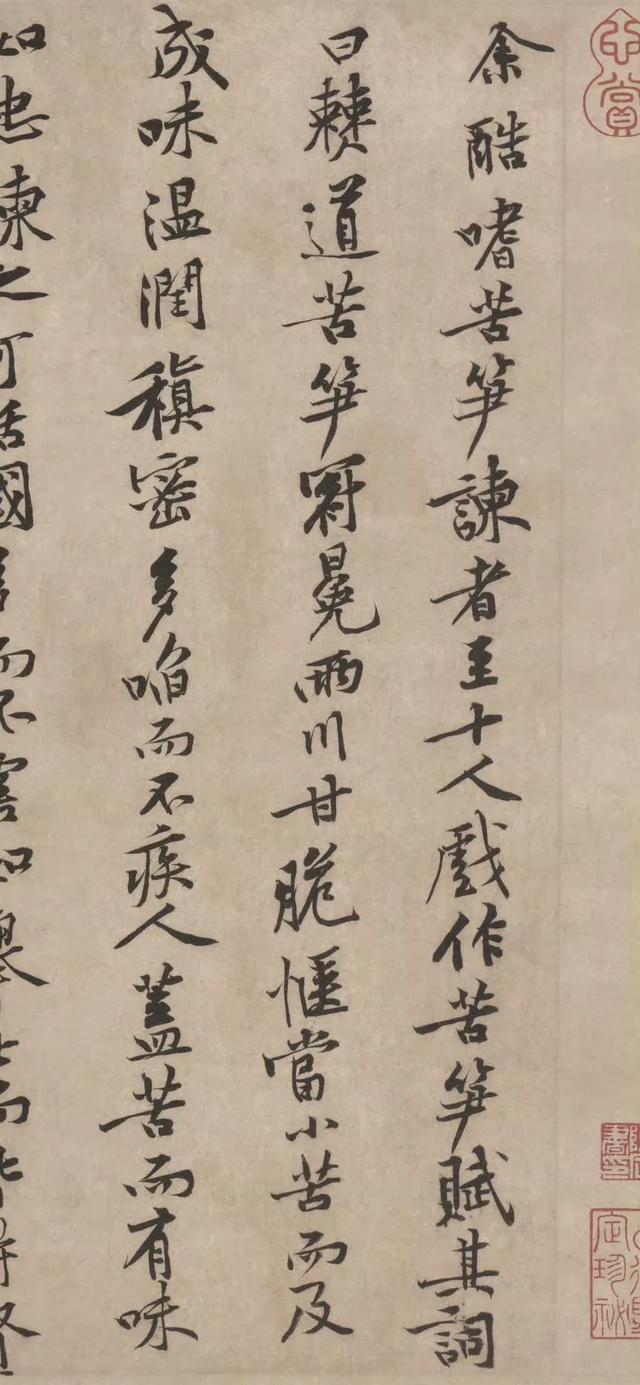 余酷嗜苦笋諫者至十人戲作苦笋賦其詞
曰僰道苦笋冠冕兩川甘脆愜當小苦而及
成味溫潤稹密多啗而不疾人蓋苦而有味
如忠諫之可活國多而不害如舉士而皆得賢